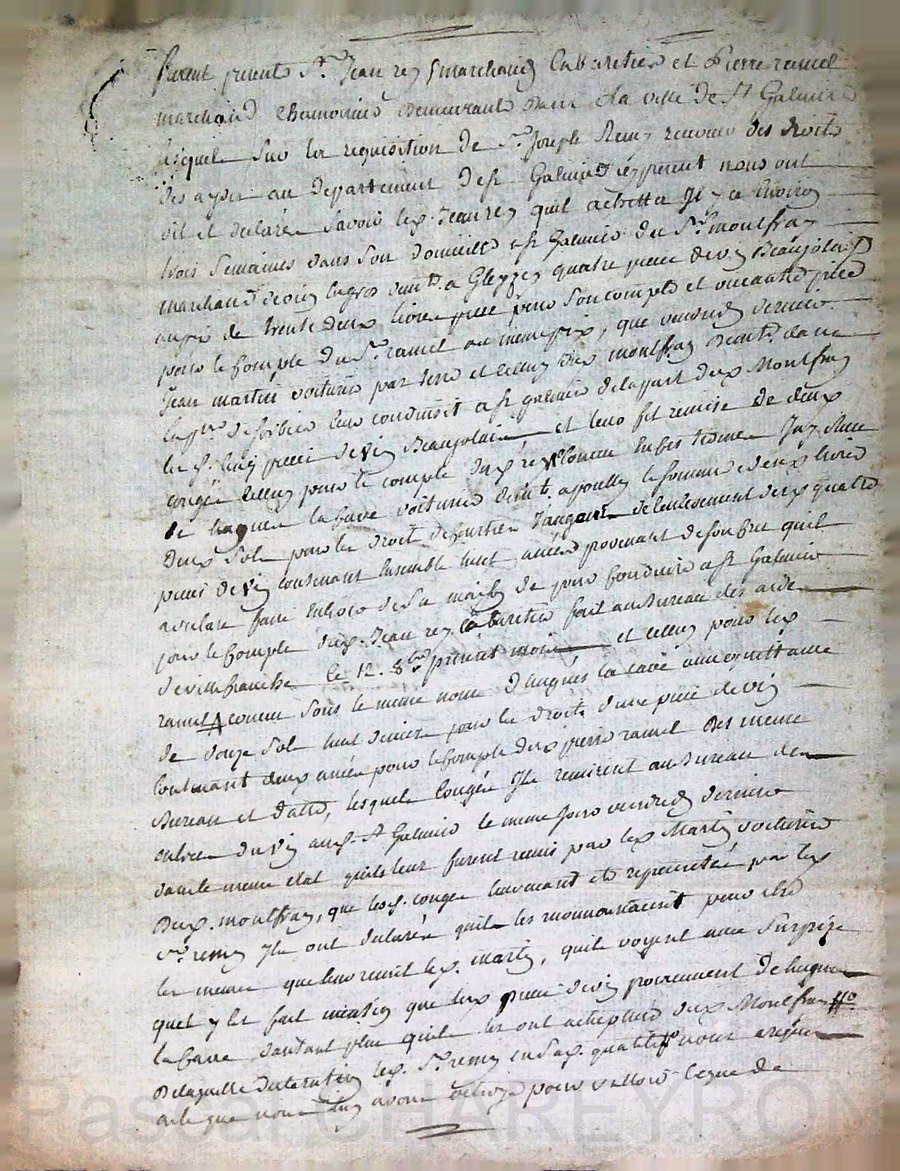 furent présents Sr. Jean rey marchand Cabaretier et Pierre ramel
marchand demeurants dans la ville de St Galmier
lesquels sur la requisition de Sr. Joseph Remy receveur des droits
des aydes au departement de St Galmier y présent nous ont
dit et declaré savoir led. Jean rey quil achetta Il y a Environ
trois semaines dans son domicille a St Galmier du Sr. montfray
marchand de vin En gros demt. a Gleyzé quatre piece de vin Beaujolais
au prix de trente deux livres piece pour son compte et une autre piece
pour le Compte du Sr. ramel au meme prix, que vendredy dernier
Jean martin voiturier par terre et celluy dud. montfray demt. dans
la psse de leur conduisit a St galmier de la part dud. Montfray
les d. cinq pieces de vin Beaujolais et leur fit remise de deux
congés celluy pour le compte dud. rey Conçeu En ces termes
de hugues la Cave voiturier demt. a pouilly la somme de deux livres
deux sols pour les droits de courtier Jaugeur de lenlevement de quatre
pieces de vin contenant Ensemble huit anées provenant de son cru quil
a declaré faire Enlever de sa maison de pour Conduire a St Galmier
pour le Compte dud. Jean rey Cabaretier fait au Bureau des aides
de villefranche le 12. 8bre présent mois et celluy pour led.
ramel conceu sous le meme nom d'hugues la cave avec quittance
de douze sols huit deniers pour les droits d'une piece de vin
Contenant deux anées pour le Compte dud. pierre ramel des meme
Bureau et datte, lesquels Congés Ils remirent au Bureau des
entrées du vin aud. St Galmier le meme jour vendredy dernier
dans le meme etat quils leur furent remis par led. Martin voiturier
dud. montfray, que les d. congés leur ayant eté representés par led.
Sr. remy Ils ont declaré quils les reconnoissaient pour etre
les memes que leur remit led. martin, quils voyent avec surprise
quil y est fait mention que lesd. pieces de vin proviennent de hugues
la Cave dautant plus quils les ont acheptées dud. Montfray
De laquelle declaration led. Sr. remy en sa d. qualité nous a requis
acte que nous luy avons octroyé pour valloir ce que de
Pascal CHAREYRON